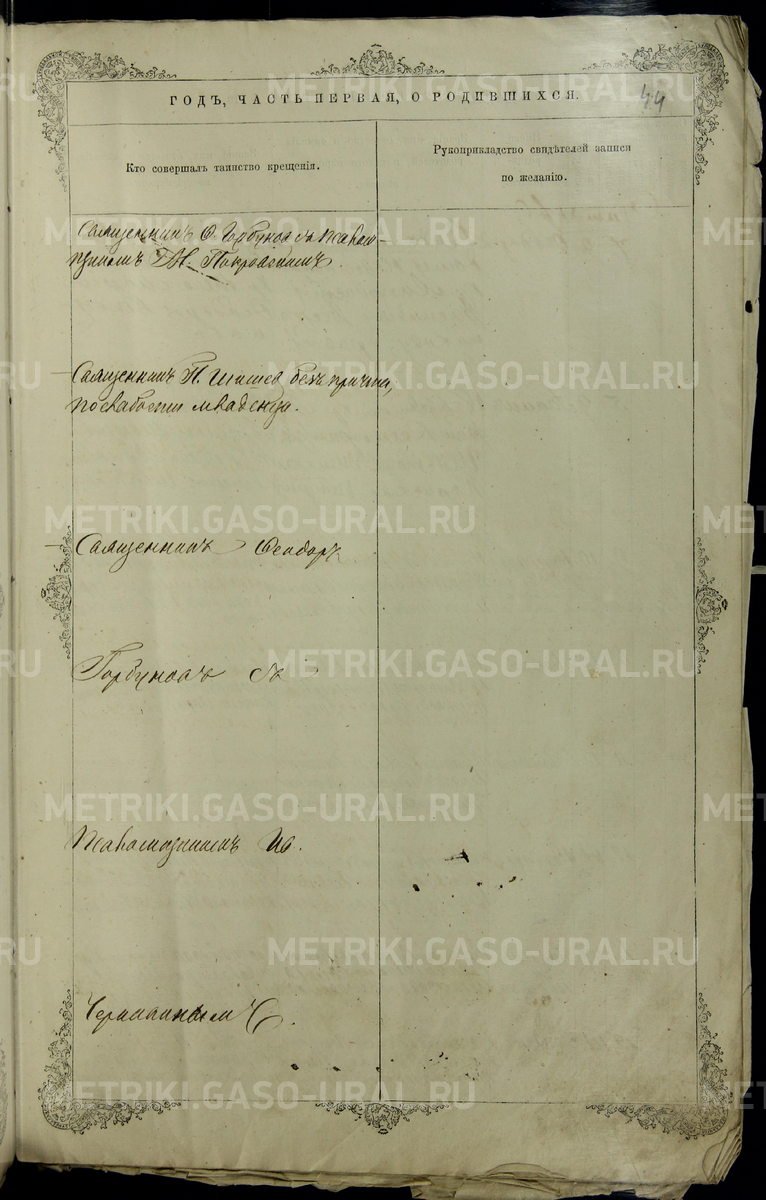 ГОДЪ, ЧАСТЬ ПЕРВАЯ, О РОДИВШИХСЯ.
44
Кто совершалъ таинство крещенія.
Рукоприкладство свидѣтелей записи
по желанію.
Священникъ Ѳ. Горбуновъ съ Псалом-
щикомъ Покровскимъ.
Священникъ П. Шишевъ безъ причта,
по слабости младенца.
Священникъ Ѳеодоръ
Горбуновъ съ
Псаломщикомъ Ив.
METRIKI.GASO-URAL.RU